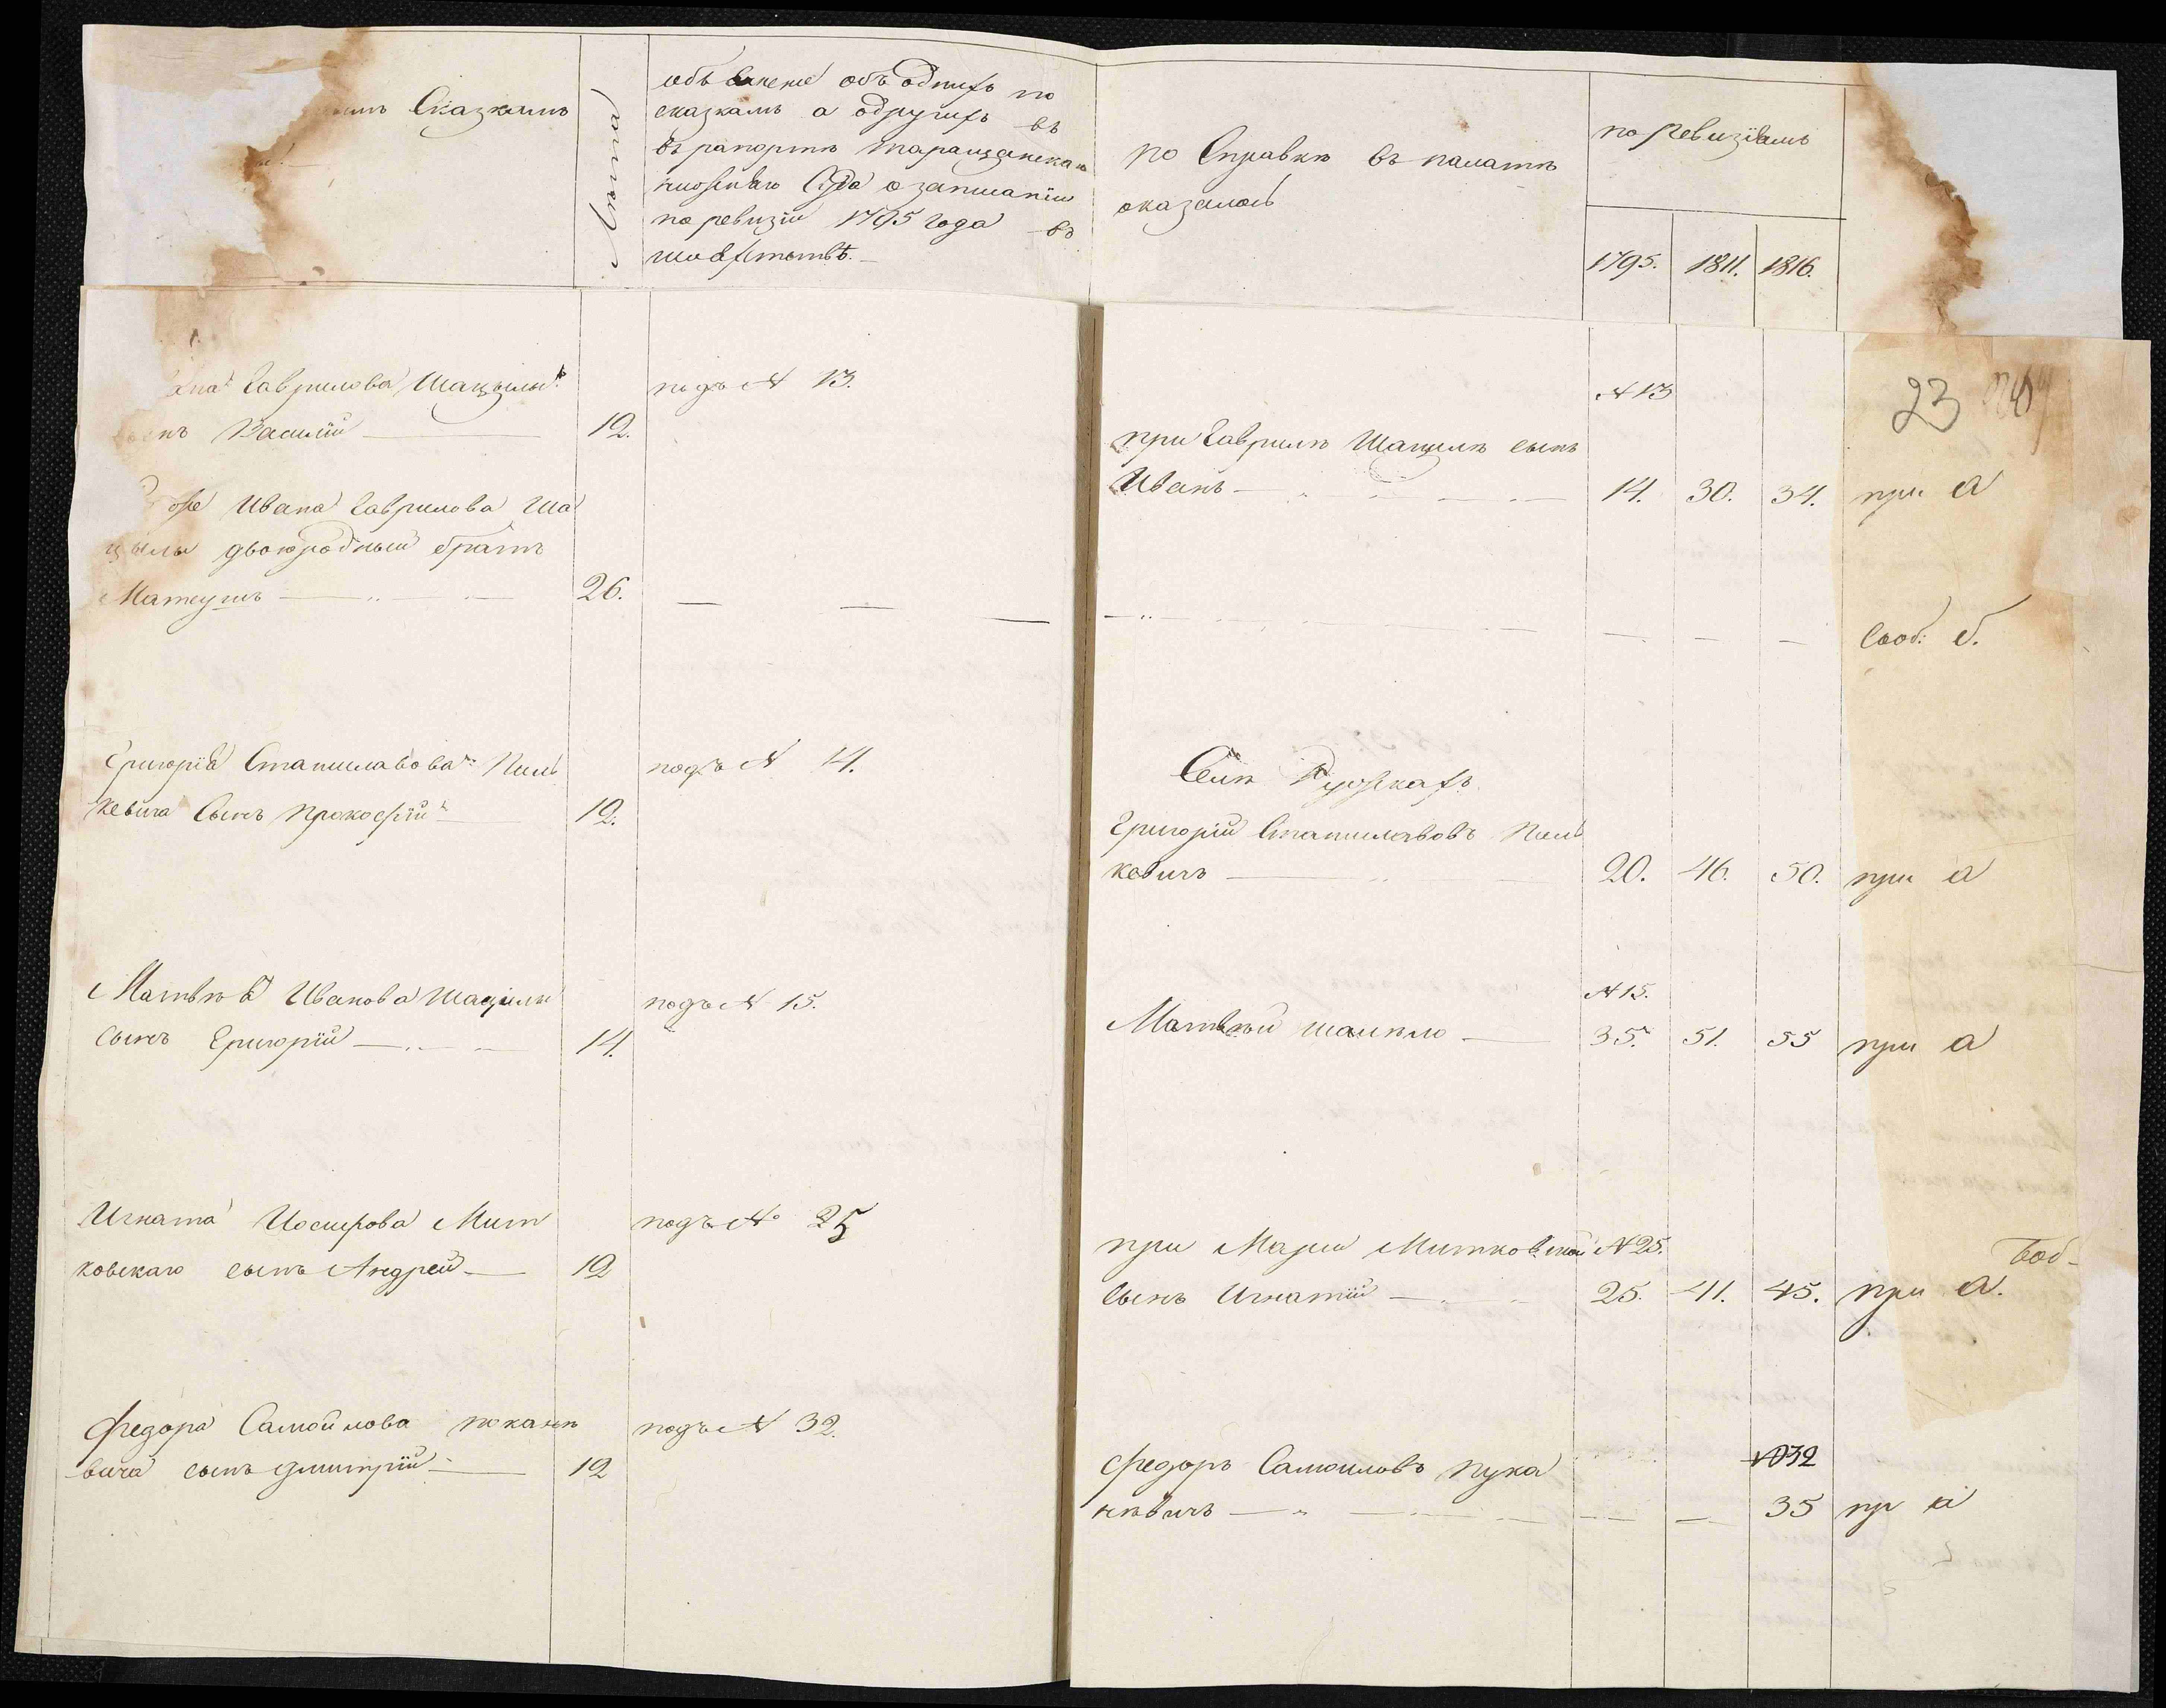 Сказкамъ
лѣта
объясненіе объ однихъ по
сказкамъ а о другихъ въ
въ рапортѣ Таращанскаго
нижняго Суда о записаніи
по ревизіи 1795 года въ
шляхетствѣ.
по Справкѣ въ палатѣ
оказалось
по ревизіямъ
1795. 1811. 1816.
23
Гаврилова Шацылы
сынъ Василій — 12.
подъ N 13.
N 13
при Гаврилѣ Шацилѣ сынъ
Иванъ — 14. 30. 34. при а
Ивана Гаврилова Ша
цылы двоюродный братъ
Матеушъ — 26. — — —
— — — — сооб: б.
Григорія Станиславова Пиль
кевича сынъ Прокофій — 12.
подъ N 14.
Селѣ Ружкахъ
Григорій Станиславовъ Пиль
кевичъ — 20. 46. 50. при а
Матвѣя Иванова Шацилы
сынъ Григорій — 14.
подъ N 15.
N 15.
Матвѣй Шацило — 35. 51. 55 при а
Игната Иосифова Мит
ковскаго сынъ Андрей — 12
подъ N 25
при Марии Митковской N 25.
сынъ Игнатій — 25. 41. 45. при а.
Федора Самойлова
вича сынъ Дмитрій — 12
подъ N 32.
Федоръ Самоиловъ Пука
нѣвичъ — — — 35 пр а
N 32